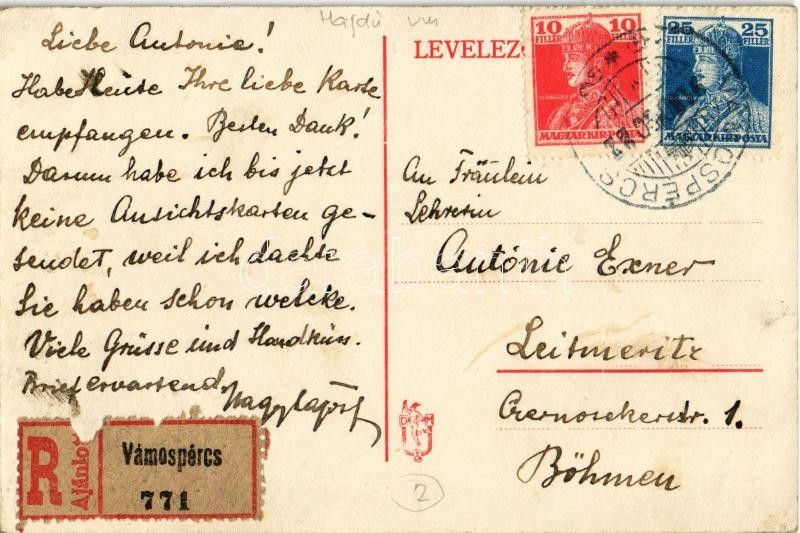 Hajdú vm
Liebe Antonie!
Habe Heute Ihre liebe Karte
empfangen. Besten Dank!
Darum habe ich bis jetzt
keine Ansichtskarten ge-
sendet, weil ich dachte
Sie haben schon welcke.
Viele Grüsse und Handküss.
Brief erwartend
Nagy Lajos
R
Ajánlot
Vámospércs
771
LEVELEZ
10 FILLÉR 10
MAGYAR KIR. POSTA
25 FILLÉR 25
MAGYAR KIR. POSTA
An Fräulein
Lehrerin
Antónie Exner
Leitmeritz
Czernosekerstr. 1.
Böhmen
2
darabanth